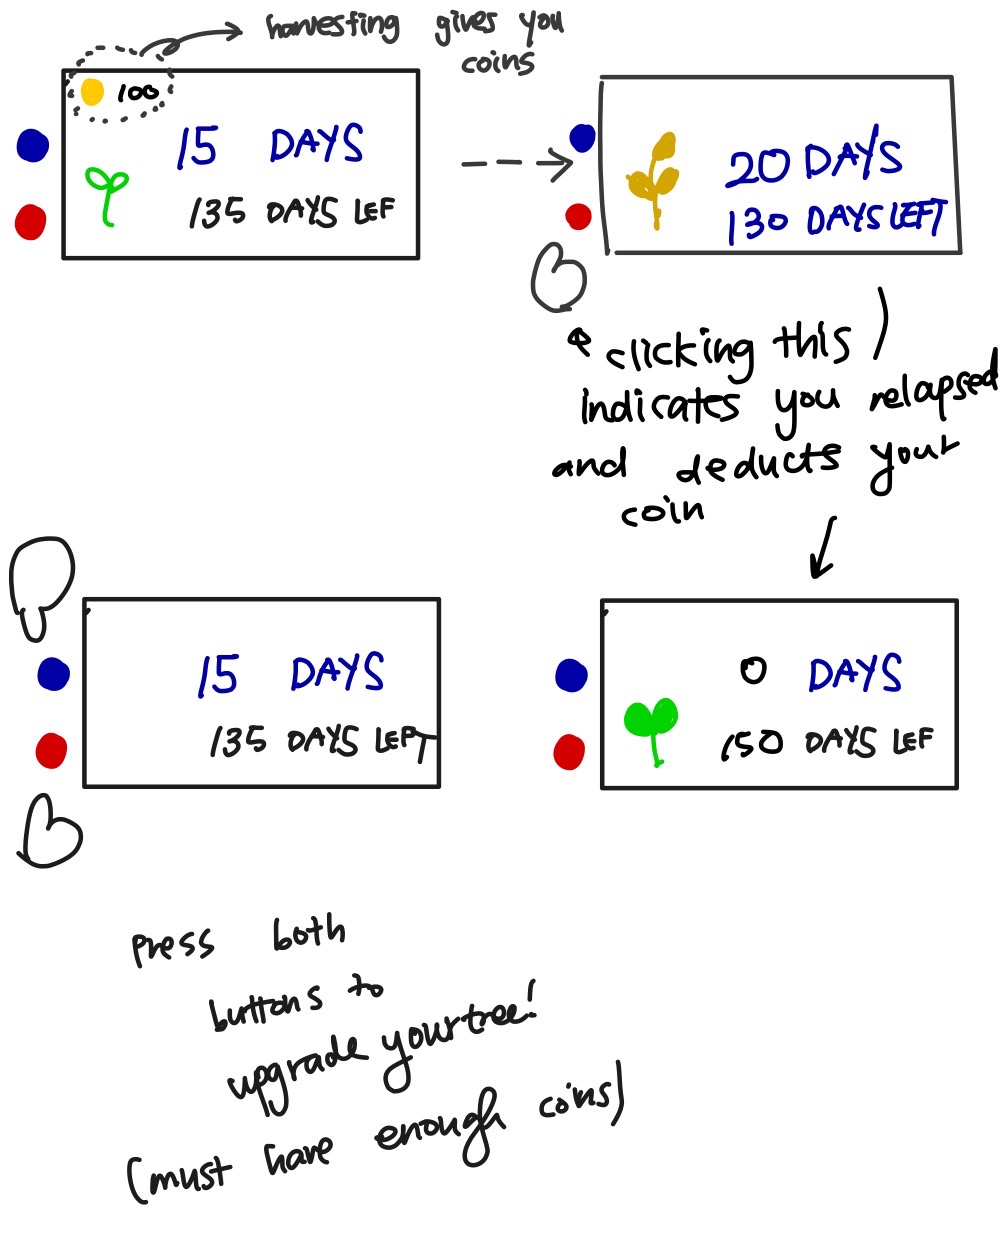 harvesting gives you
coins
100
15 DAYS
135 DAYS LEF
20 DAYS
130 DAYS LEFT
clicking this )
indicates you relapsed
and deducts your
coin
15 DAYS
135 DAYS LEFT
0 DAYS
150 DAYS LEF
press both
buttons to
upgrade your tree!
(must have enough coins)